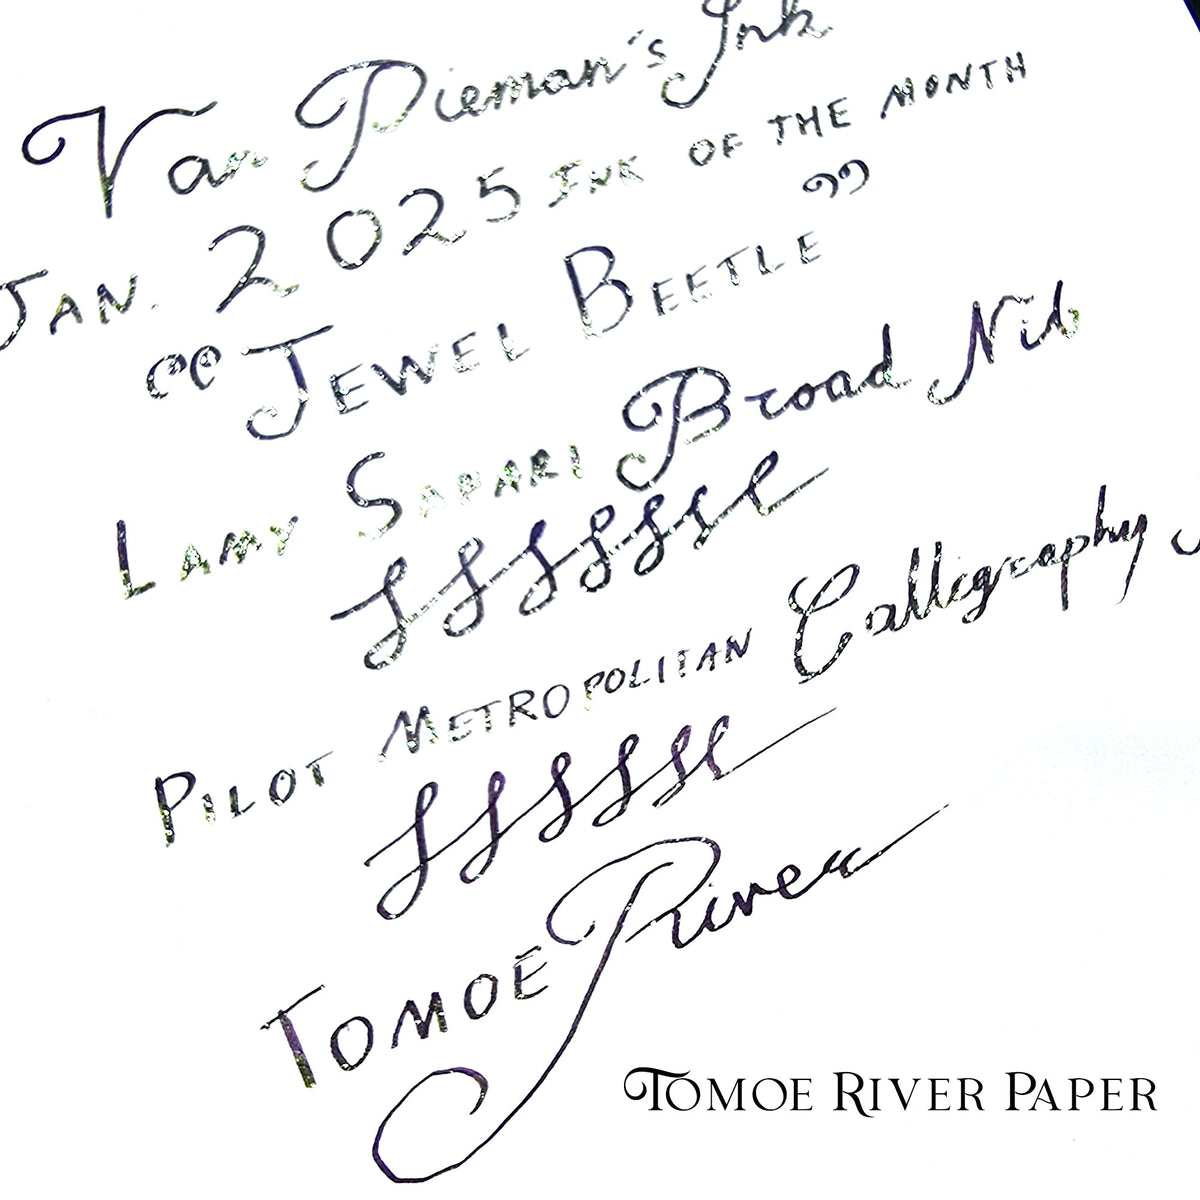 Van Dieman's Ink
JAN. 2025 INK OF THE MONTH
"JEWEL BEETLE"
LAMY SAFARI Broad Nib
PILOT METROPOLITAN Calligraphy
TOMOE River
TOMOE RIVER PAPER